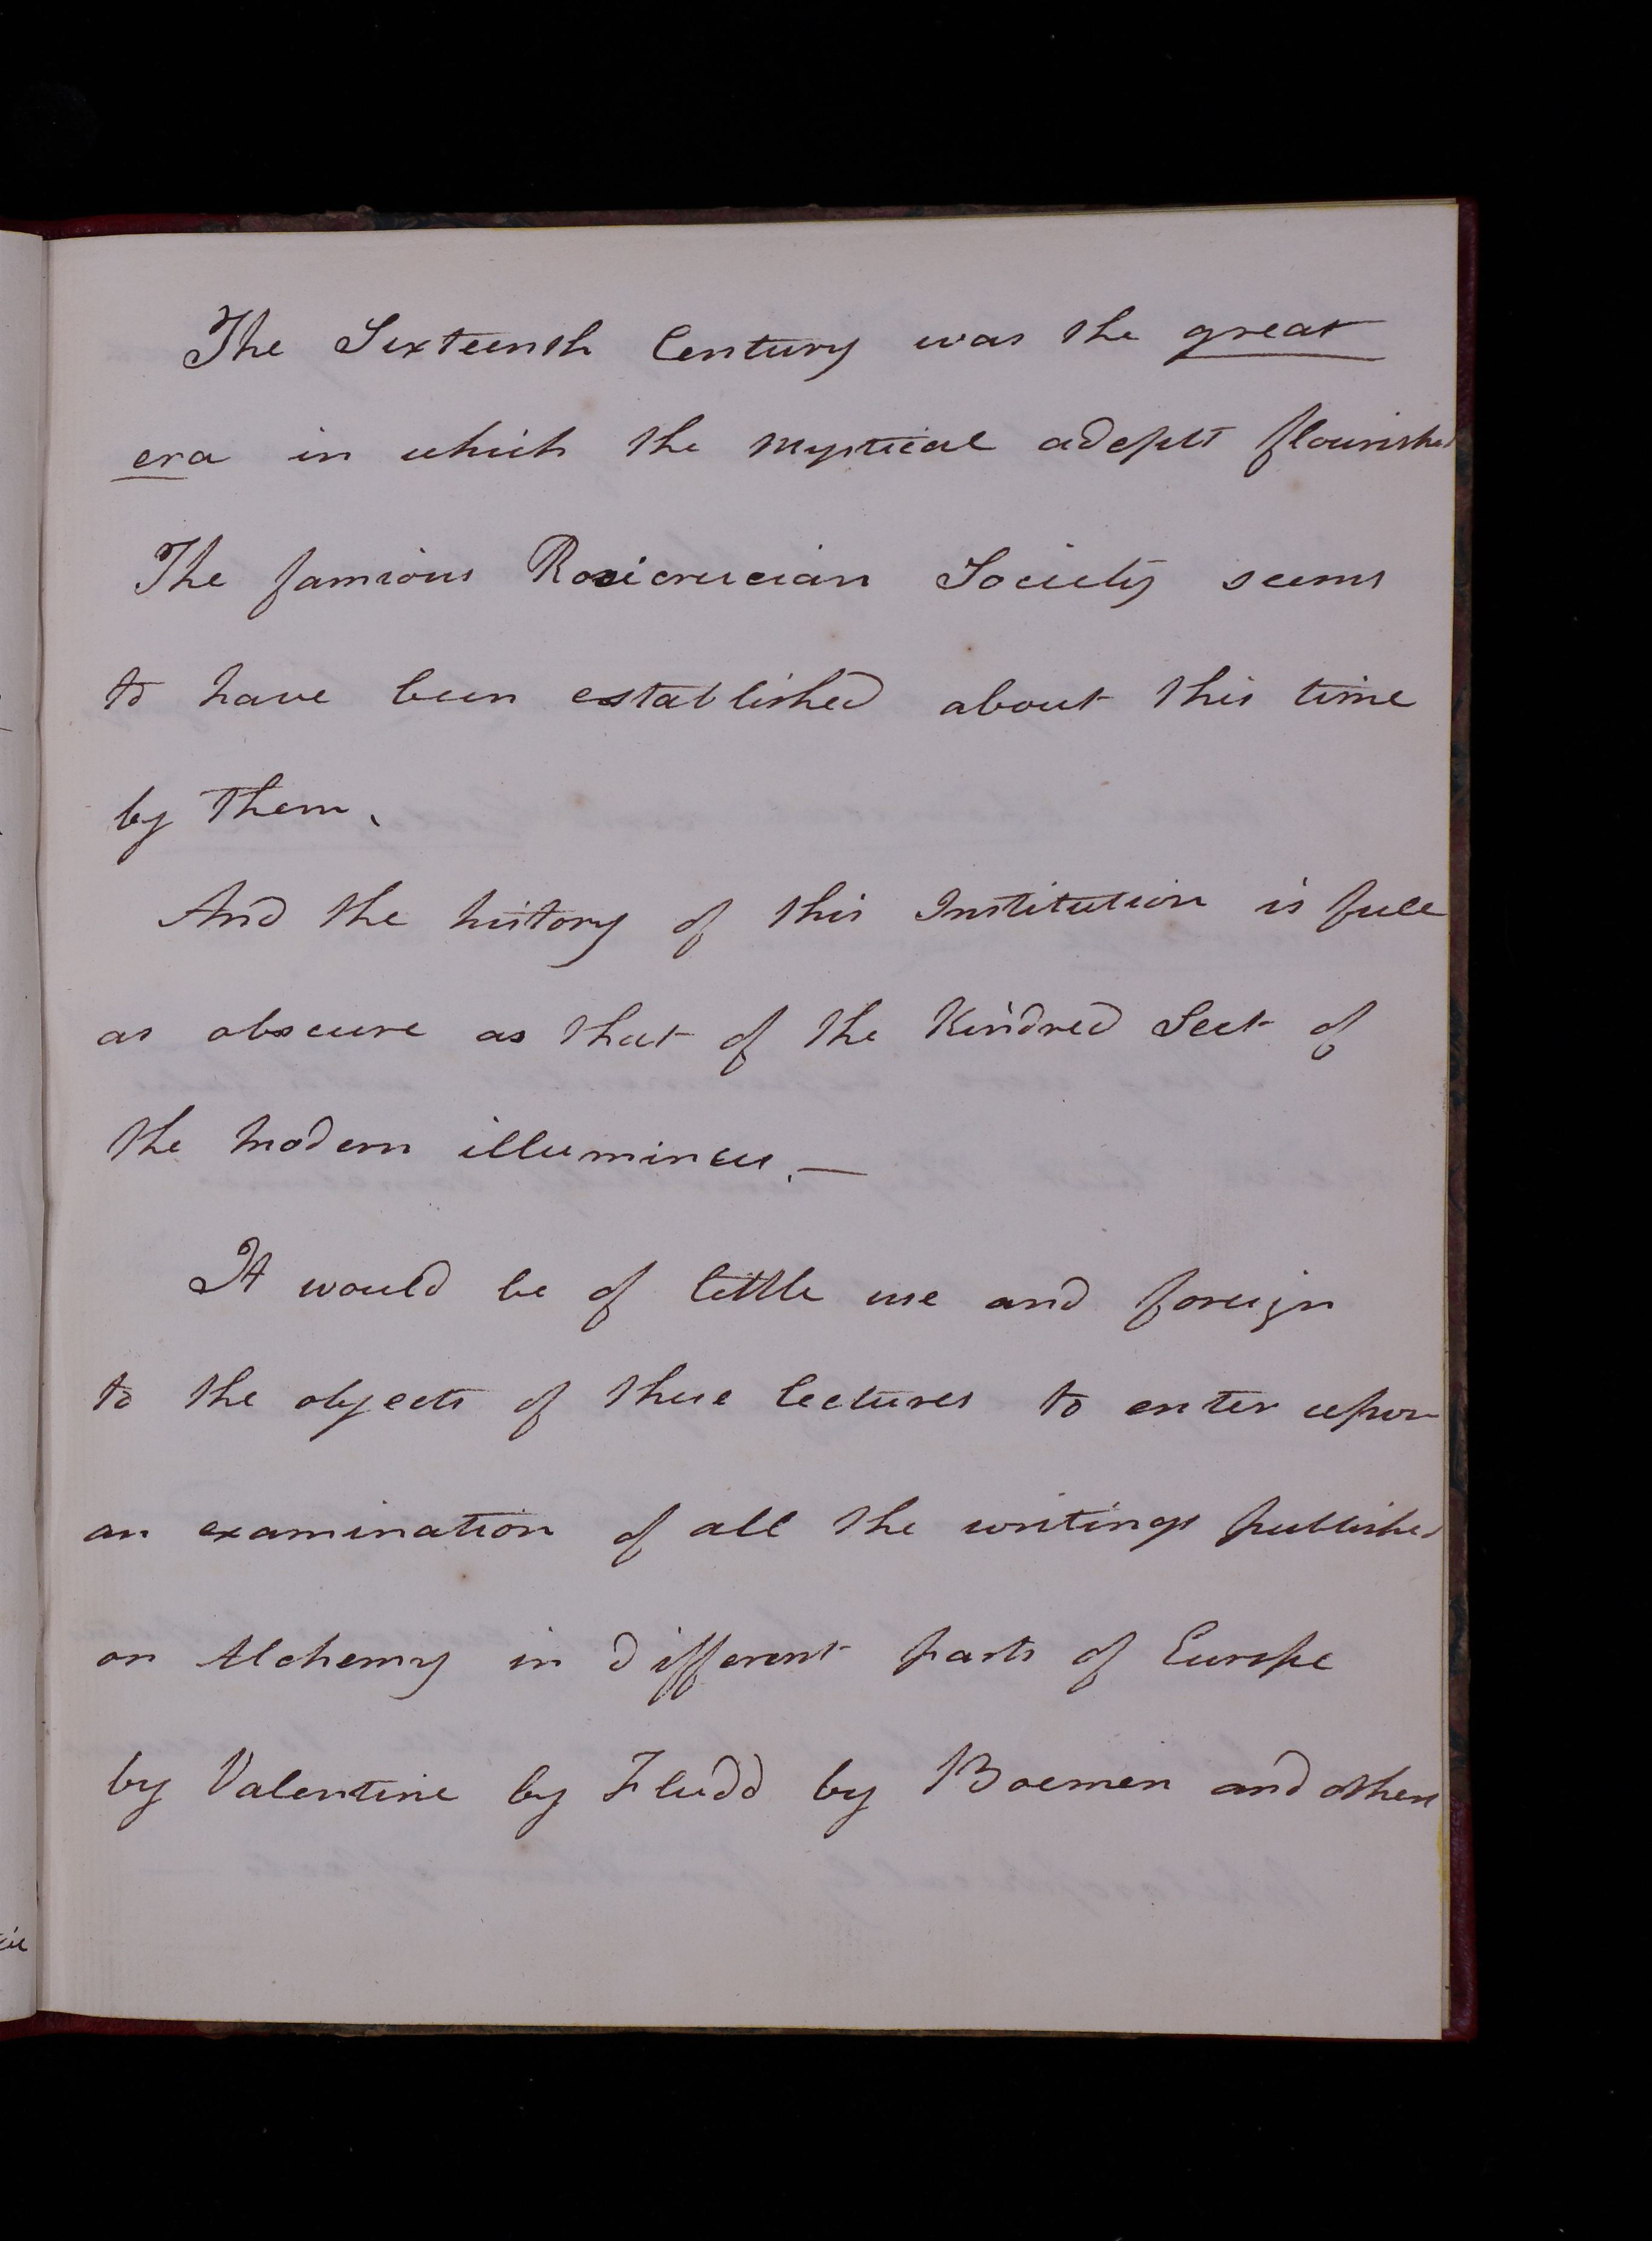 The Sixteenth Century was the great
era in which the mystical adepts flourished
The famous Rosicrucian Society seems
to have been established about this time
by Them.
And the history of this Institution is full
as obscure as that of the Kindred Sect of
the modern illuminees. —
It would be of little use and foreign
to the objects of these lectures to enter upon
an examination of all the writings published
on Alchemy in different parts of Europe
by Valentine by Fludd by Boemen and others